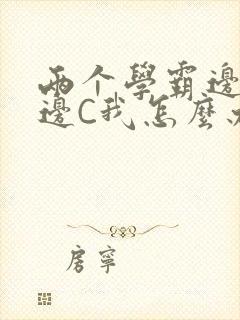 兩个學霸邊
邊C我怎麼
房寧